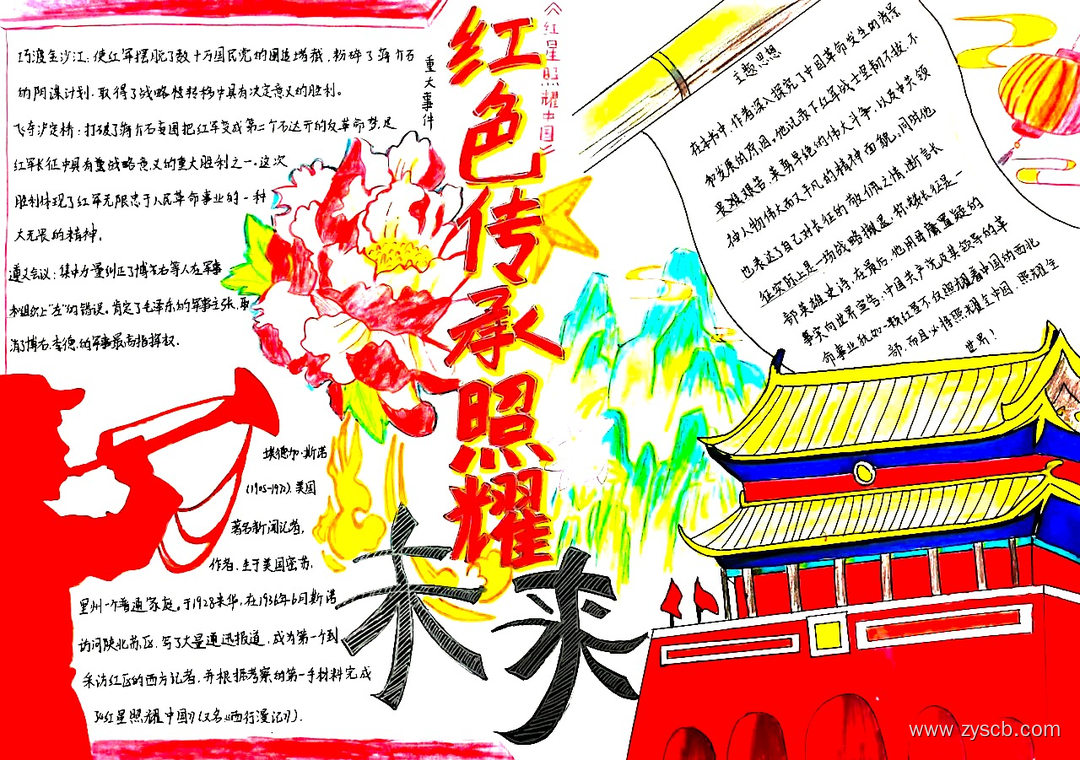 《红星照耀中国》
红色传承照耀
未来
重大事件
巧渡金沙江：使红军摆脱了数十万国民党的围追堵截，粉碎了蒋介石
的阴谋计划，取得了战略性转移中具有决定意义的胜利。
飞夺泸定桥：打破了蒋介石妄图把红军变成第二个石达开的反革命梦，是
红军长征中具有重战略意义的重大胜利之一。这次
胜利体现了红军无限忠于人民革命事业的一种
大无畏的精神。
遵义会议：集中力量纠正了博古等人在军事
和组织上"左"的错误。肯定了毛泽东的军事主张，取
消了博古、李德的军事最高指挥权。
埃德加·斯诺
(1905-1972)，美国
著名新闻记者，
作者，生于美国密苏，
里州一个普通家庭，于1928来华，在1936年6月斯诺
访问陕北苏区，写了大量通迅报道，成为第一个到
采访红区的西方记者，并根据考察的第一手材料完成
了《红星照耀中国》(又名《西行漫记》).
主题思想
在本书中，作者深入探究了中国革命发生的背景
和发展的原因。他记录下红军战士坚韧不拔、不
艰难报告、英勇卓绝的伟大斗争，以及中共领
袖人物伟大而又平凡的精神面貌，同时他
也表达了自己对长征的敬佩之情，断言长
征实际上是一场战略撤退，称赞长征是一
部英雄史诗，在最后，他用毋庸置疑的
事实向世界宣告：中国共产党及其领导的革
命事业犹如一颗红星不仅照耀着中国的西北
部，而且必将照耀全中国，照耀全
世界！
www.zyscb.com